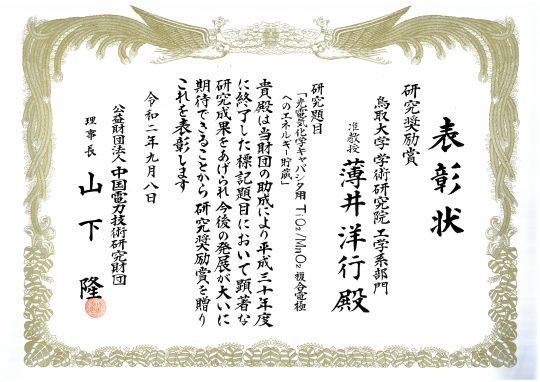 表彰状
研究奨励賞
鳥取大学 学術研究院 工学系部門
准教授 薄井洋行 殿
研究題目
「光電気化学キャパシタ用 TiO2/MnO2 複合電極
へのエネルギー貯蔵」
貴殿は当財団の助成により平成三十年度
に終了した標記題目において顕著な
研究成果をあげられ今後の発展が大いに
期待できることから 研究奨励賞を贈り
これを表彰します
令和二年九月八日
公益財団法人 中国電力技術研究財団
理事長 山下 隆